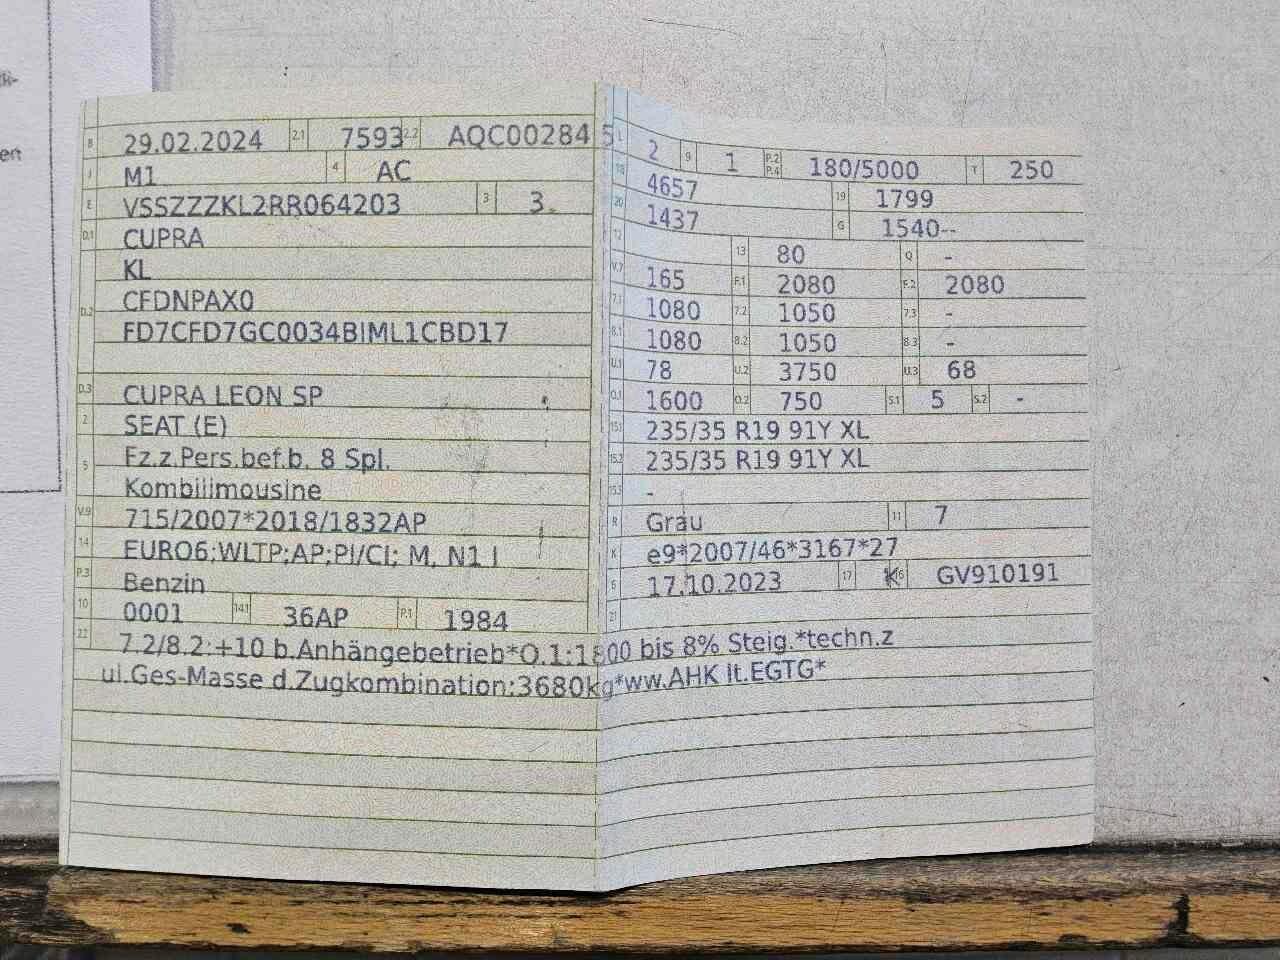 en
B 29.02.2024 2.1 7593 2.2 AQC002845
J M1 4 AC
E VSSZZZKL2RR064203 3 3
D.1 CUPRA
KL
D.2 CFDNPAX0
FD7CFD7GC0034BIML1CBD17
D.3 CUPRA LEON SP
2 SEAT (E)
5 Fz.z.Pers.bef.b. 8 Spl.
Kombilimousine
V.9 715/2007*2018/1832AP
14 EURO6;WLTP;AP;PI/CI; M, N1 I
P.3 Benzin
10 0001 14.1 36AP P.1 1984
L 2 9 1 P.2 P.4 180/5000 T 250
18 4657 19 1799
20 1437 G 1540--
12 13 80 Q -
V.7 165 F.1 2080 F.2 2080
7.1 1080 7.2 1050 7.3 -
8.1 1080 8.2 1050 8.3 -
U.1 78 U.2 3750 U.3 68
O.1 1600 O.2 750 S.1 5 S.2 -
15.1 235/35 R19 91Y XL
15.2 235/35 R19 91Y XL
15.3 -
R Grau 11 7
K e9*2007/46*3167*27
6 17.10.2023 17 K 16 GV910191
21
22 7.2/8.2:+10 b.Anhängebetrieb*O.1:1800 bis 8% Steig.*techn.z
ul.Ges-Masse d.Zugkombination:3680kg*ww.AHK lt.EGTG*